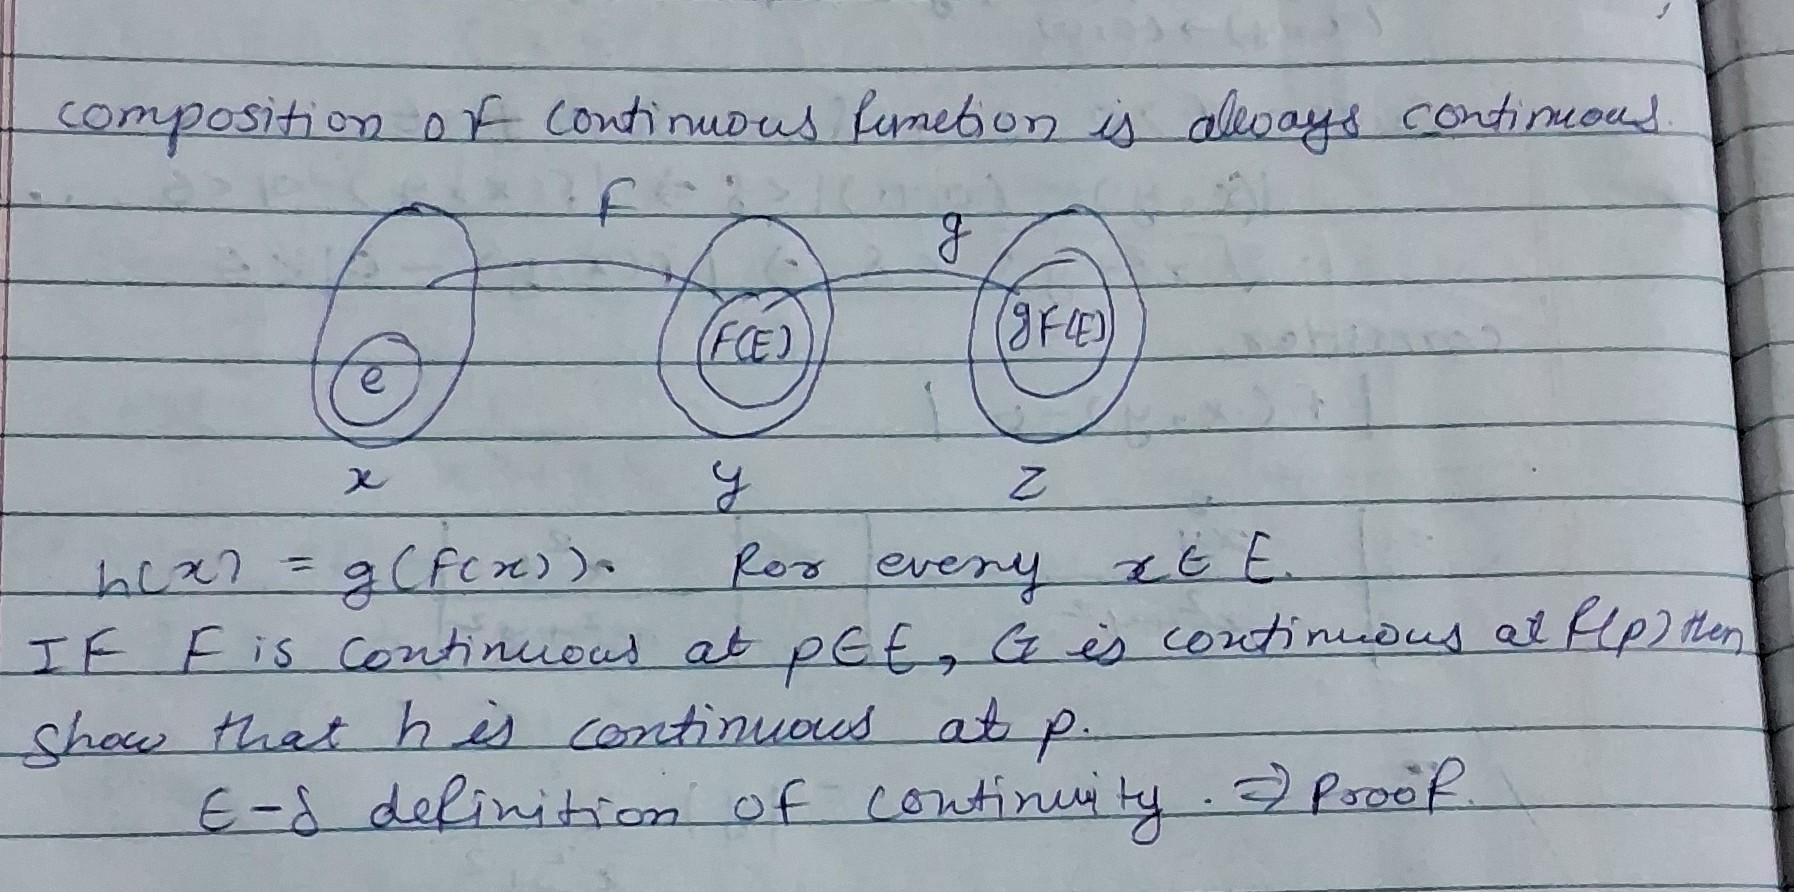 composition of continuous function is always continuous.
f g
e F(E) gF(E)
x y z
h(x) = g(f(x)). for every x ∈ E.
IF F is continuous at p∈E, G is continuous at f(p) then
show that h is continuous at p.
ε-δ definition of continuity. ⇒ Proof.